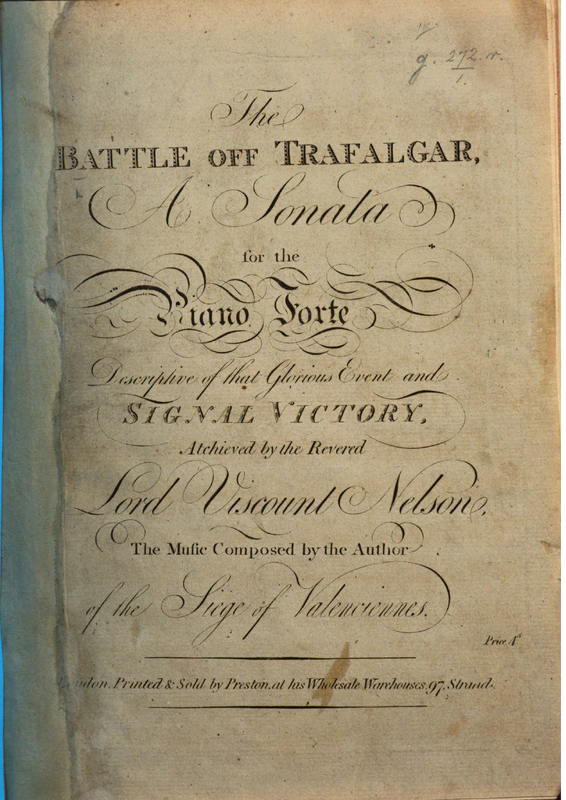 g. 272. r.
1.
The
BATTLE OFF TRAFALGAR,
A Sonata
for the
Piano Forte
Descriptive of that Glorious Event and
SIGNAL VICTORY,
Atchieved by the Revered
Lord Viscount Nelson,
The Muſic Composed by the Author
of the Siege of Valenciennes.
Price 4ˢ
London. Printed & Sold by Preston, at his Wholesale Warehouses, 97, Strand.